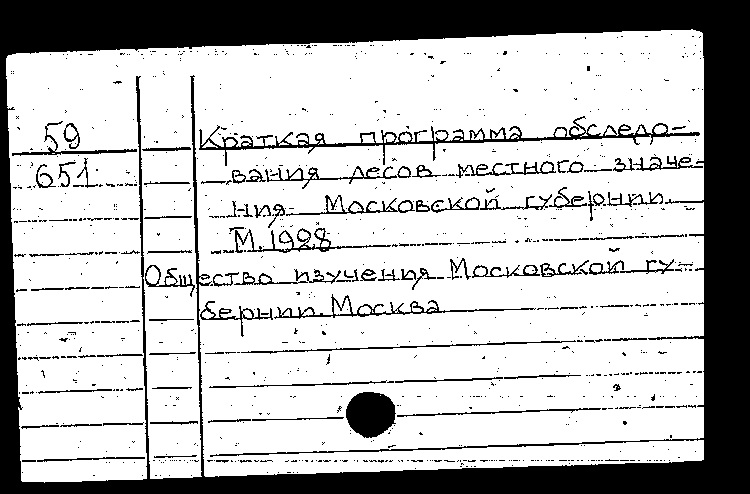 59
651
Краткая программа обследо-
вания лесов местного значе-
ния Московской губернии.
М. 1928
Общество изучения Московской гу-
бернии. Москва